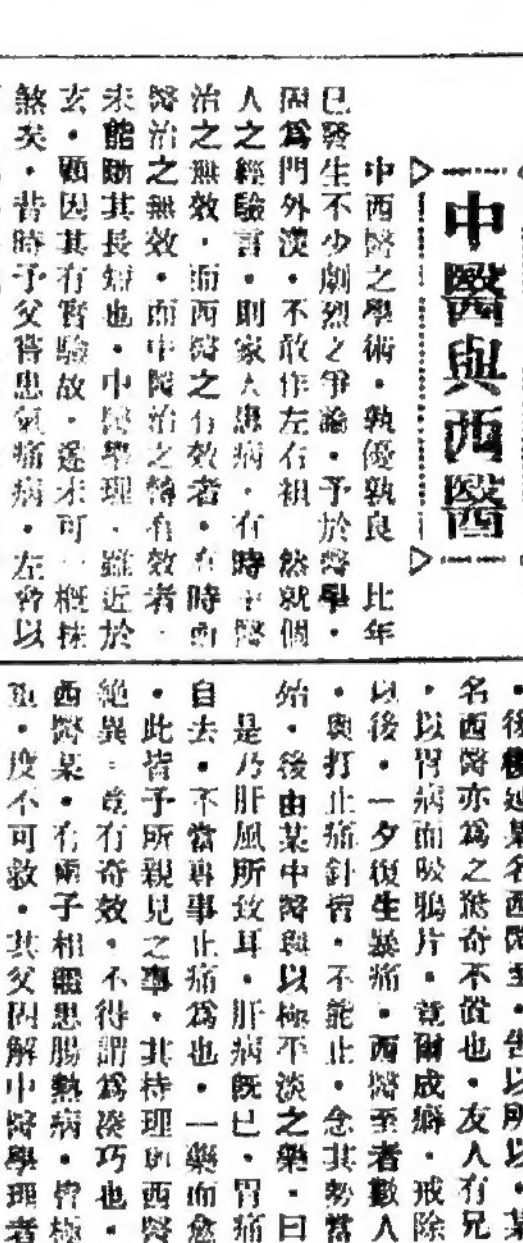 中醫與西醫
中西醫之學術・孰優孰良　比年
已發生不少劇烈之爭論・予於醫學・
因爲門外漢・不敢作左右袒　然就個
人之經驗言・則家人患病・有時中醫
治之無效・而西醫之有效者・有時西
醫治之無效・而中醫治之轉有效者・
未能斷其長短也・中醫學理・雖近於
玄・顧因其有實驗故・遂未可一概抹
煞矣・昔時予父嘗患氣痛病・左脅以
・後某名西醫至・告以所以・某
名西醫亦爲之驚奇不置也・友人有兄
・以胃病而吸鴉片・竟爾成癖・戒除
以後・一夕復生暴痛・西醫至者數人
・與打止痛針皆・不能止・念其勢當
殆・後由某中醫與以極平淡之藥・曰
是乃肝風所致耳・肝病既已・胃痛
自去・不當專事止痛爲也・一藥而愈
・此皆予所親見之事・其持理與西醫
絕異・竟有奇效・不得謂爲湊巧也・
西醫某・有兩子相繼患腸熱病・皆極
重・度不可救・其父固解中醫學理者